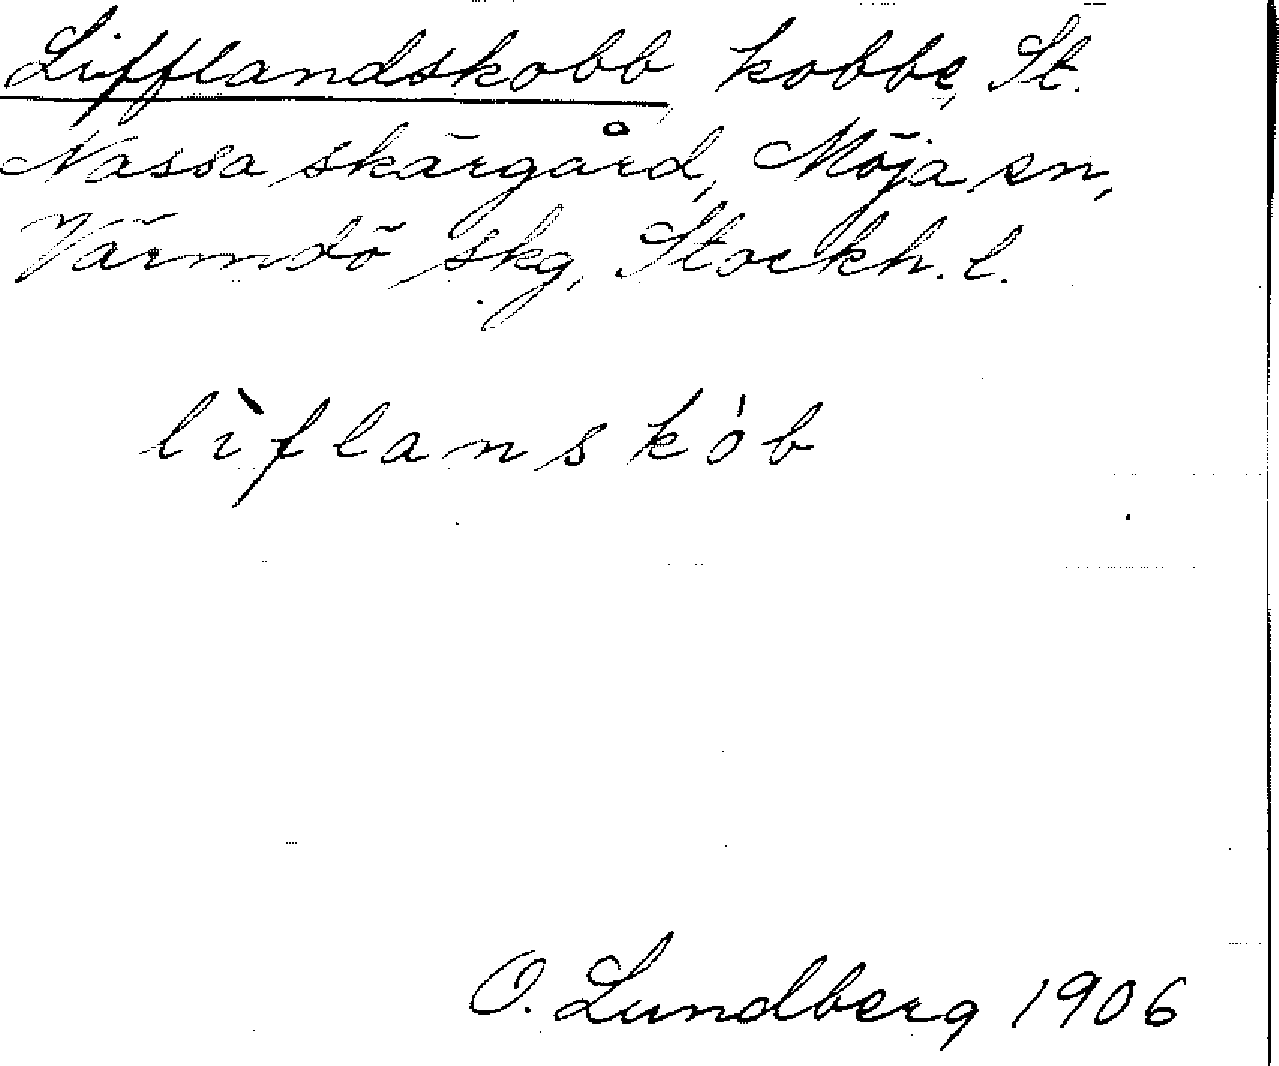 Lifflandskobb, kobbe, St.
Nassa skärgård, Möja sn,
Värmdö skg, Stockh. l.
lìflanskób
O. Lundberg 1906